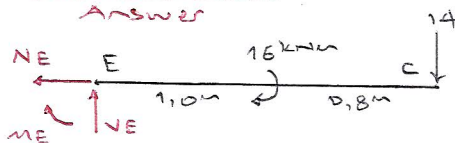 Answer
14
NE E 16 kNm C
1,0m 0,8m
ME VE